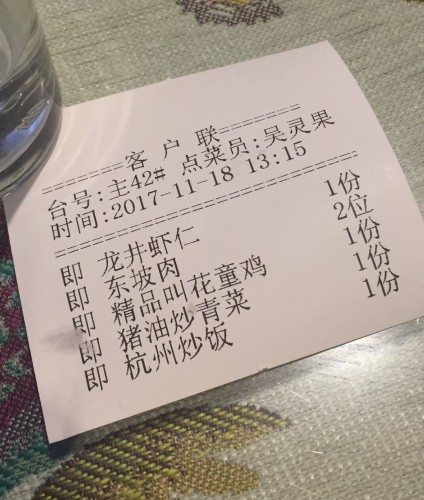 =======客 户 联=======
台号:主42# 点菜员:吴灵果
时间:2017-11-18 13:15
==========================
即 龙井虾仁 1份
即 东坡肉 2位
即 精品叫花童鸡 1份
即 猪油炒青菜 1份
即 杭州炒饭 1份